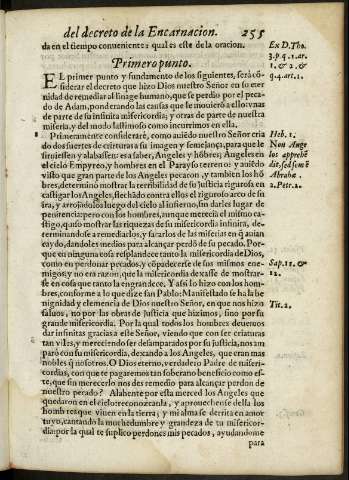 del decreto de la Encarnacion. 255
da en el tiempo conueniente: qual es este de la oracion.
Ex D.Tho.
3.p.q.1.ar.
1. & 2. &
q.4.art.1.
Primero punto.
EL primer punto y fundamento de los siguientes, será cõ-
siderar el decreto que hizo Dios nuestro Señor en su eter
nidad de remediar al linage humano, que se perdio por el peca-
do de Adan, ponderando las causas que le mouierõ a ello: vnas
de parte de su infinita misericordia; y otras de parte de nuestra
miseria, y del modo lastimoso como incurrimos en ella.
1 Primeramente considerarè, como auiẽdo nuestro Señor cria
do dos suertes de criaturas a su imagen y semejança, para que le
siruiessen y alabassen: es a saber, Angeles y hõbres; Angeles en
el cielo Empyreo, y hombres en el Parayso terreno: y auiẽdo
visto que gran parte de los Angeles pecaron, y tambien los hõ
bres, determinò mostrar la terribilidad de su justicia rigurosa en
castigar los Angeles, flechãdo contra ellos el riguroso arco de su
ira, y arrojãdolos luego del cielo al infierno, sin darles lugar de
penitencia: pero con los hombres, aunque merecia el mismo ca-
stigo, quiso mostrar las riquezas de su misericordia infinita, de-
terminandose a remediarlos, y sacarlos de las miserias en q̃ auian
caydo, dandoles medios para alcançar perdõ de su pecado. Por-
que en ninguna cosa resplandece tanto la misericordia de Dios,
como en perdonar pecados, y cõpadecerse de sus mismos ene-
migos; y no era razon, que la misericordia dexasse de mostrar-
se en cosa que tanto la engrandece. Y assi lo hizo con los hom-
bres, conforme a lo que dize san Pablo: Manifestado se ha la be
nignidad y clemencia de Dios nuestro Señor, en que nos hizo
saluos, no por las obras de justicia que hizimos, sino por su
grande misericordia. Por la qual todos los hombres deuemos
dar infinitas gracias a este Señor, viendo que con ser criaturas
tan viles, y mereciendo ser desamparados por su justicia, nos am
parò con su misericordia, dexando a los Angeles, que eran mas
nobles q̃ nosotros. O Dios eterno, verdadero Padre de miseri-
cordias, con que te pagaremos tan soberano beneficio como es-
te, que sin merecerlo nos des remedio para alcançar perdon de
nuestro pecado? Alabente por esta merced los Angeles que
quedaron en el cielo: reconozcanla, y aprouechense della los
hombres que viuen en la tierra; y mi alma se derrita en amor
tuyo, cantando la muchedumbre y grandeza de tu misericor-
dia: por la qual te suplico perdones mis pecados, ayudandome
para
Heb. 2.
Non Ange
los apprehẽ
dit, sed semẽ
Abrahæ.
2.Petr.2.
Sap.11. &
12.
Tit.2.